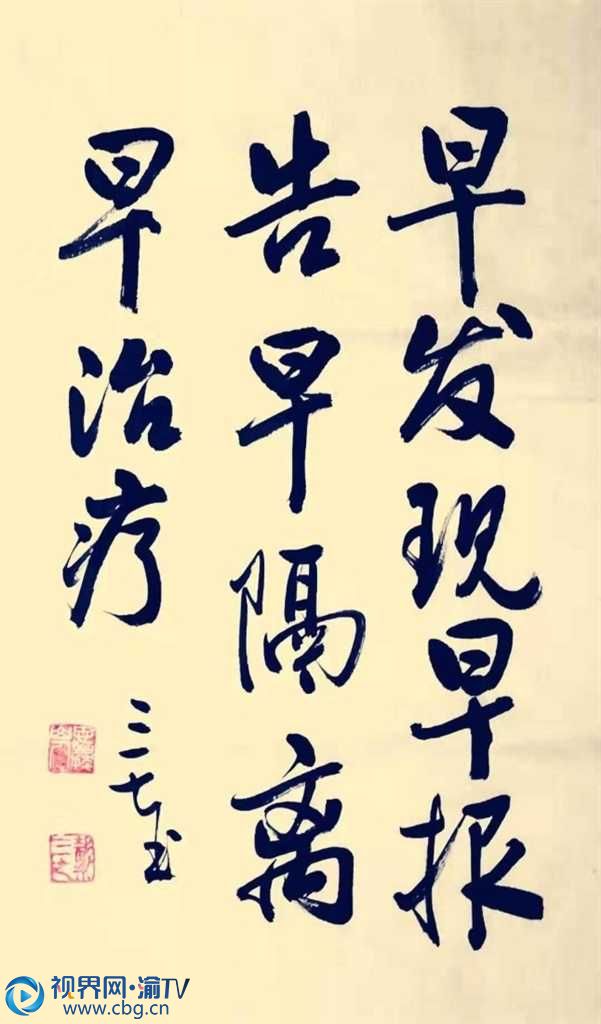 早发现早报
告早隔离
早治疗
三一七书
视界网·渝TV
www.cbg.cn